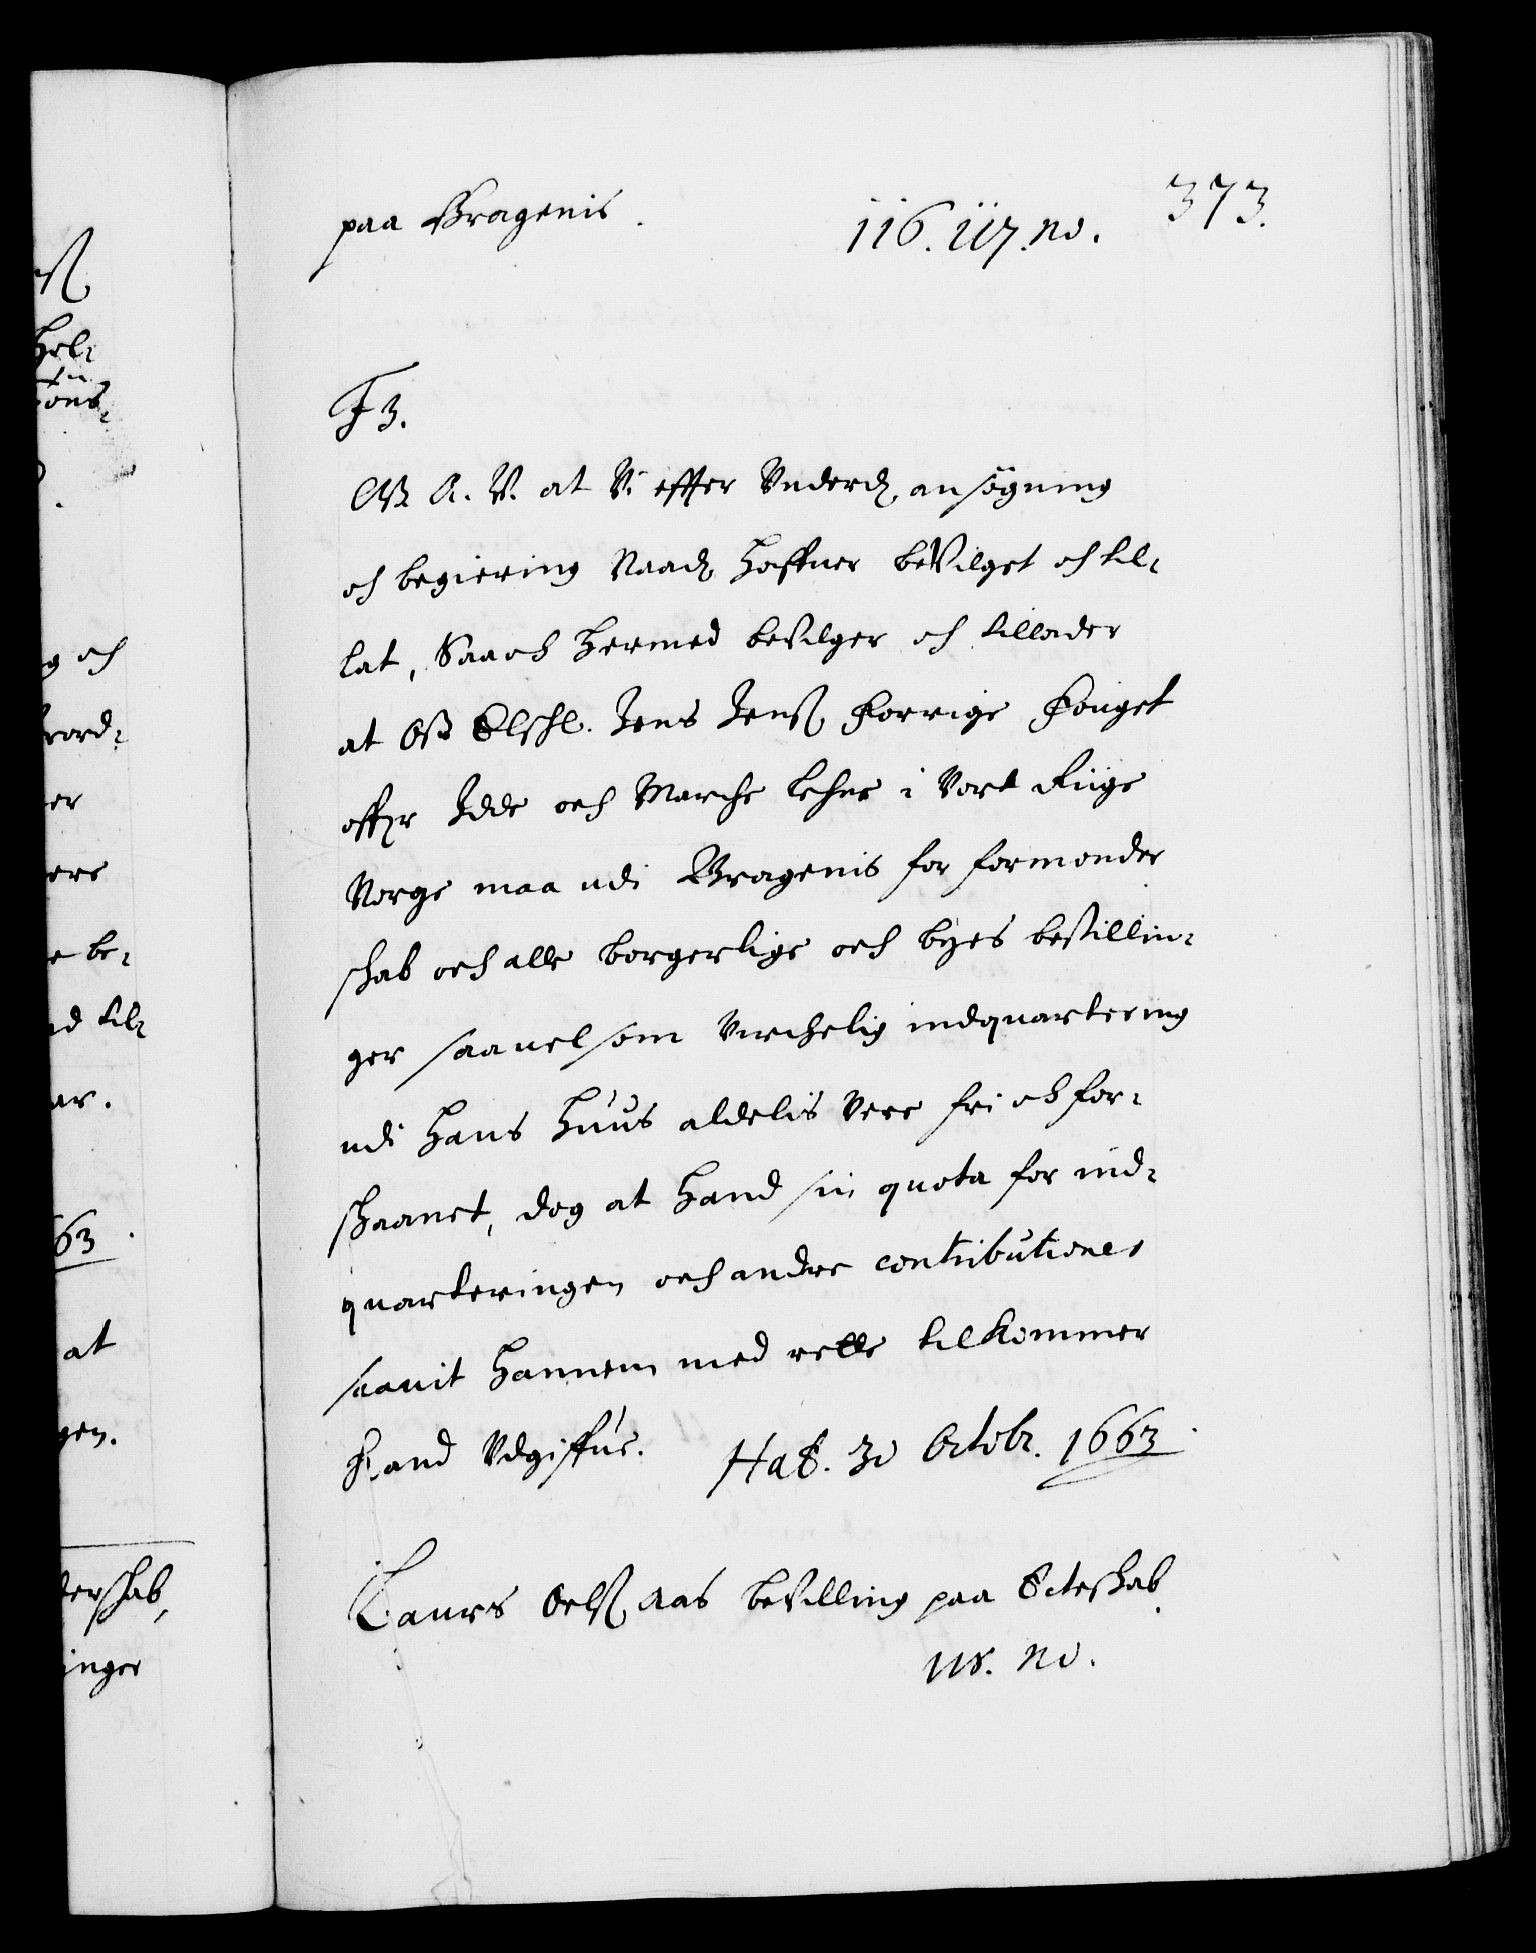 373.
paa Bragenis.
116. 117. no.
F 3.
G. A. V. at Vi effter Underd. ansögning
och begiering Naadl haffuer bevilget och til-
lat, Saa och hermed bevilger och tillader
at Oß Elschl. Jens Jenß forrige fouget
offuer Idde och Marche lehne i Vort Riige
Norge maa udi Bragenis for formonder
schab och alle borgerlige och byes bestillin-
ger saauelsom Virchelig indquartering
udi hans Huus aldelis Vere fri och for-
schaanet, dog at hand sin quota for ind-
quarteringen och andre contributioner
saauit hannem med rette tilkommer
hand Udgiffue. Haf. 30 Octobr. 1663
Laurs Oelß Aas bevilling paa Ecteschab
118. no.